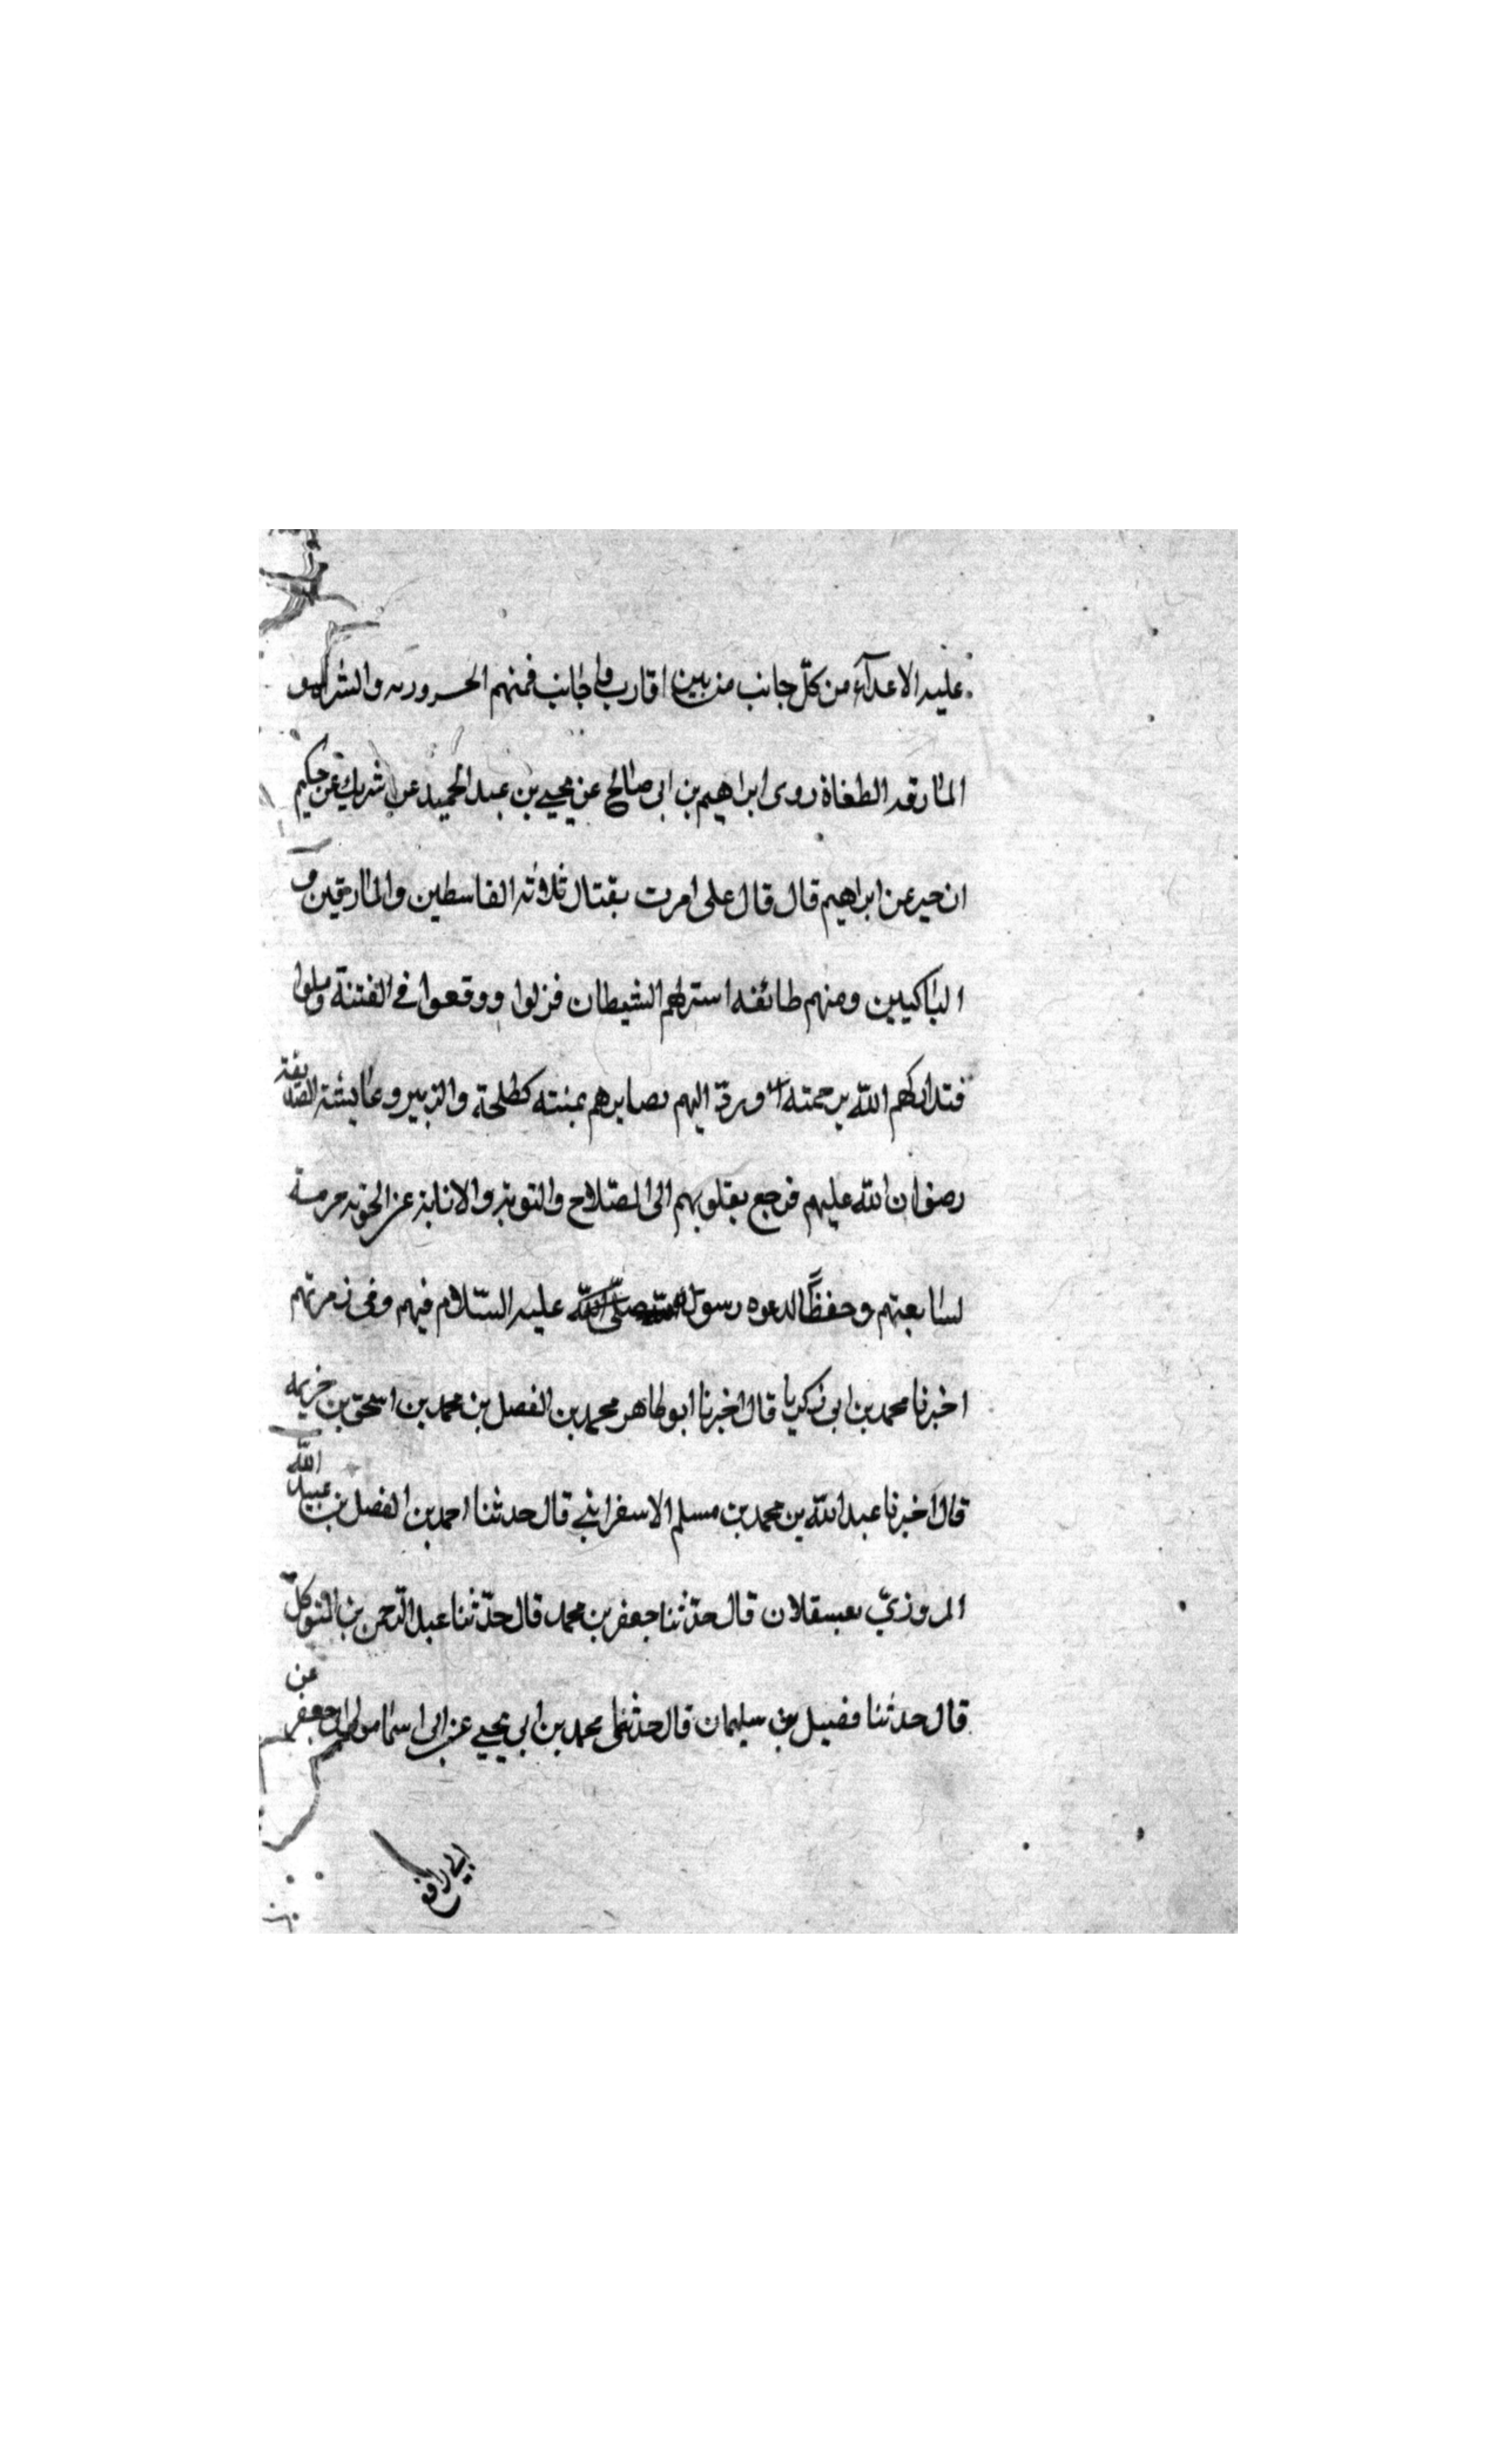 عليه الاعدآء من كلّ جانب من بين اقارب واجانب فمنهم الحروريه والشراه و
المارقه الطغاة روى ابراهيم بن ابى صالح عن يحيى بن عبد الحميد عن شريك عن حكيم
ابن جبير عن ابراهيم قال قال على امرت بقتال ثلاثه القاسطين والمارقين و
الناكثين ومنهم طائفه استزلهم الشيطان فزلوا ووقعوا في الفتنة
فتداركهم الله برحمته وردّ اليهم بصايرهم بمنته كطلحة والزبير وعايشة الصديقة
رضوان الله عليهم فرجع بقلوبهم الى الصّلاح والتوبة والانابة عن الحوبه حرمة
لسابقتهم وحفظًا لدعوه رسول الله صلى الله عليه السّلام فيهم وفى زمرتهم
اخبرنا محمد بن ابى زكريا قال اخبرنا ابو طاهر محمد بن الفضل بن محمد بن اسحق بن خزيمه
قال اخبرنا عبد الله بن محمد بن مسلم الاسفرايني قال حدثنا احمد بن الفضل بن عبيد الله
المروزيّ بعسقلان قال حدّثنا جعفر بن محمد قال حدّثنا عبد الرّحمن بن المتوكلّ
قال حدثنا فضيل بن سليمان قال حدثنى محمد بن ابي يحيى عن ابى اسما مولى ابى جعفر عن
ابي رافع